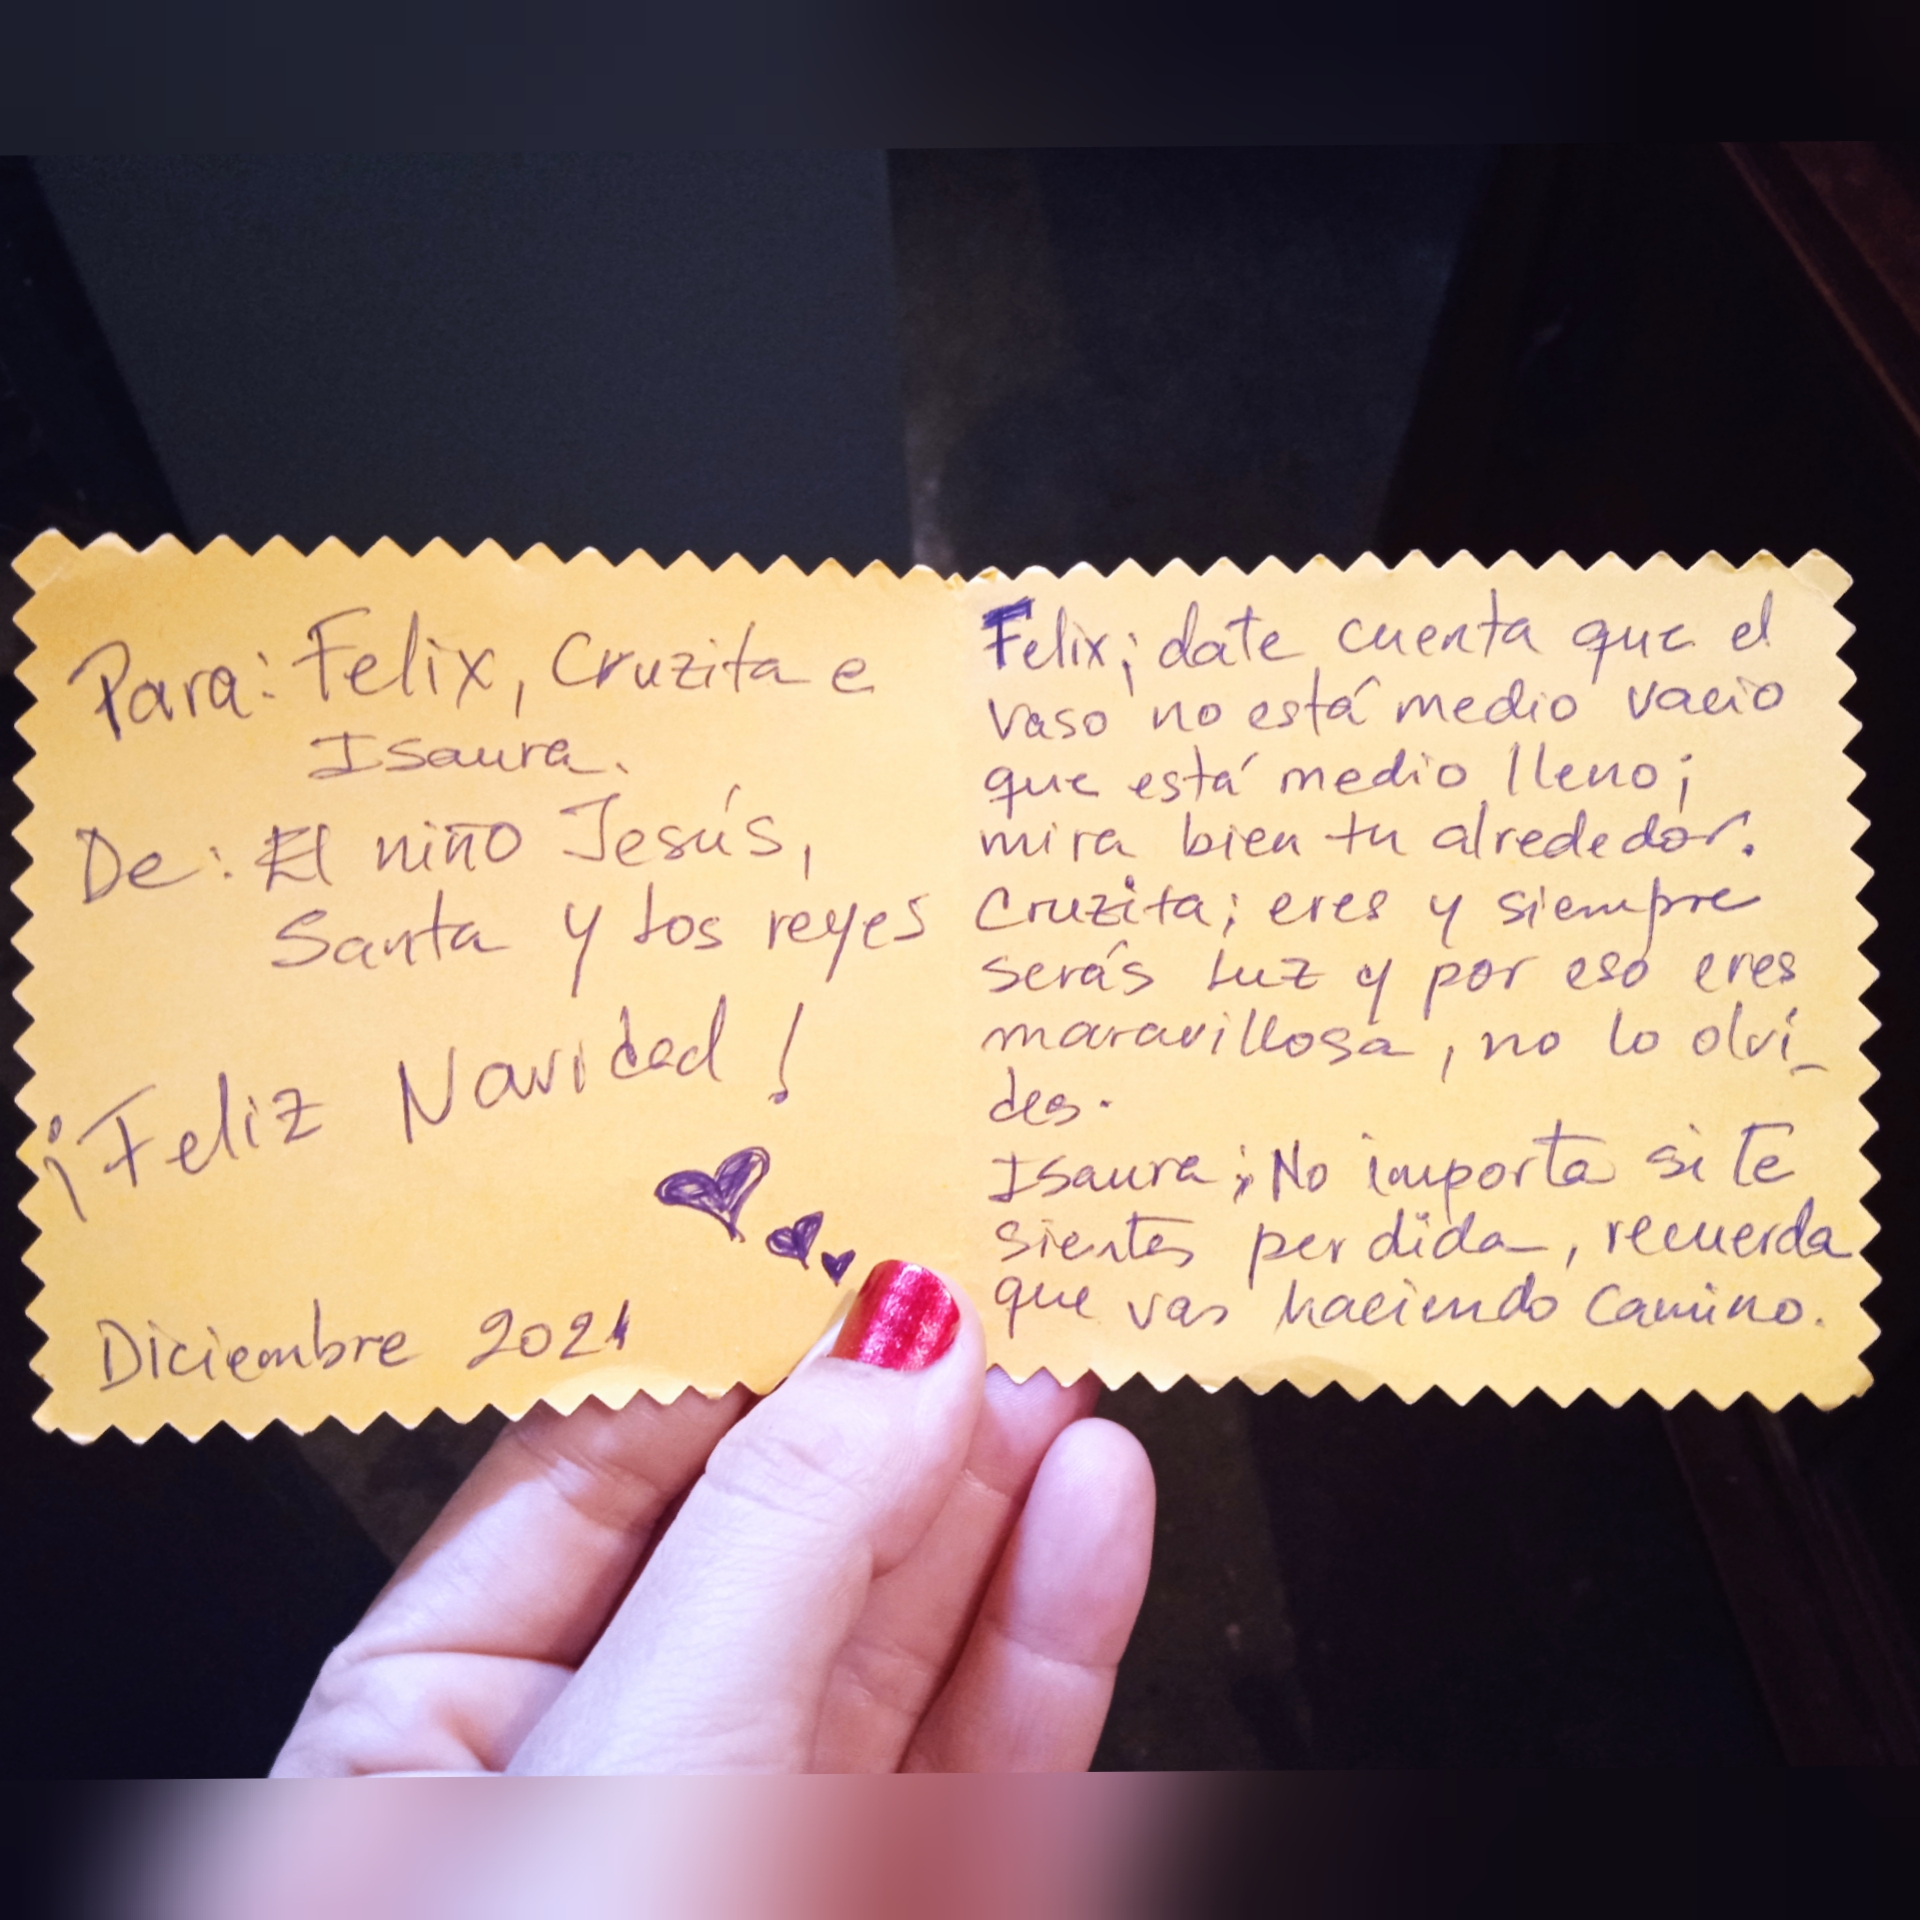 Para: Felix, Cruzita e
Isaura.
De: El niño Jesús,
Santa y los reyes
¡Feliz Navidad!
Diciembre 2021
Felix; date cuenta que el
vaso no está medio vacio
que está medio lleno;
mira bien tu alrededor.
Cruzita; eres y siempre
serás luz y por eso eres
maravillosa, no lo olvi-
des.
Isaura; No importa si te
sientes perdida, recuerda
que vas haciendo camino.